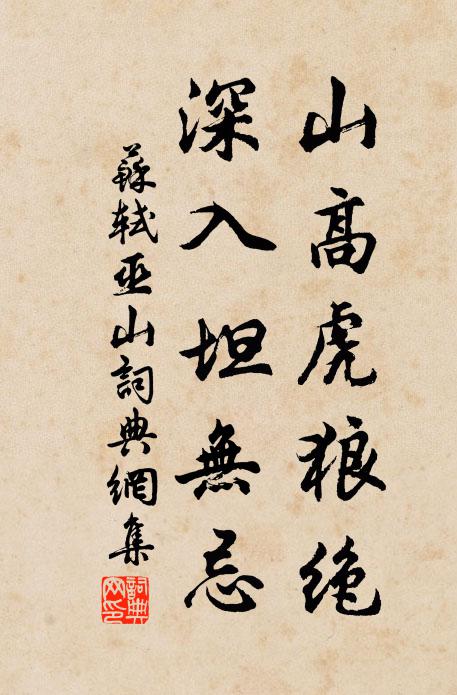 山高虎狼绝
深入坦無忌
蘇軾巫山詞典網集
詞典網印